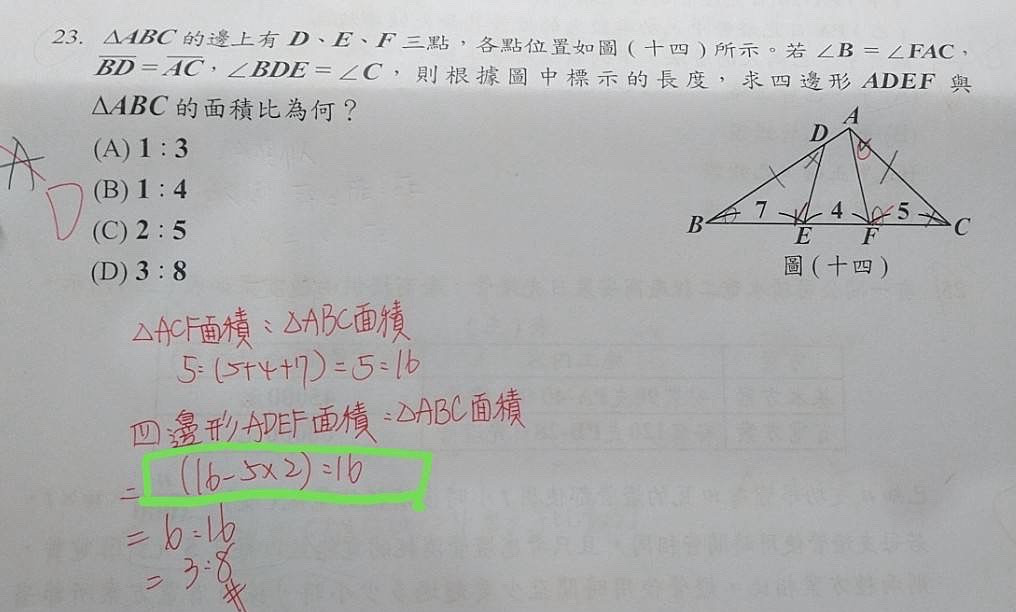 23. △ABC 的邊上有 D、E、F 三點，各點位置如圖(十四)所示。若 ∠B = ∠FAC，
BD = AC，∠BDE = ∠C，則根據圖中標示的長度，求四邊形 ADEF 與
△ABC 的面積比為何？
(A) 1 : 3
(B) 1 : 4
(C) 2 : 5
(D) 3 : 8
A
D
A
D
B
7
4
5
C
E
F
圖(十四)
△ACF面積：△ABC面積
5:(5+4+7)=5:16
四邊形ADEF面積：△ABC面積
= (16-5×2):16
= 6:16
= 3:8
#